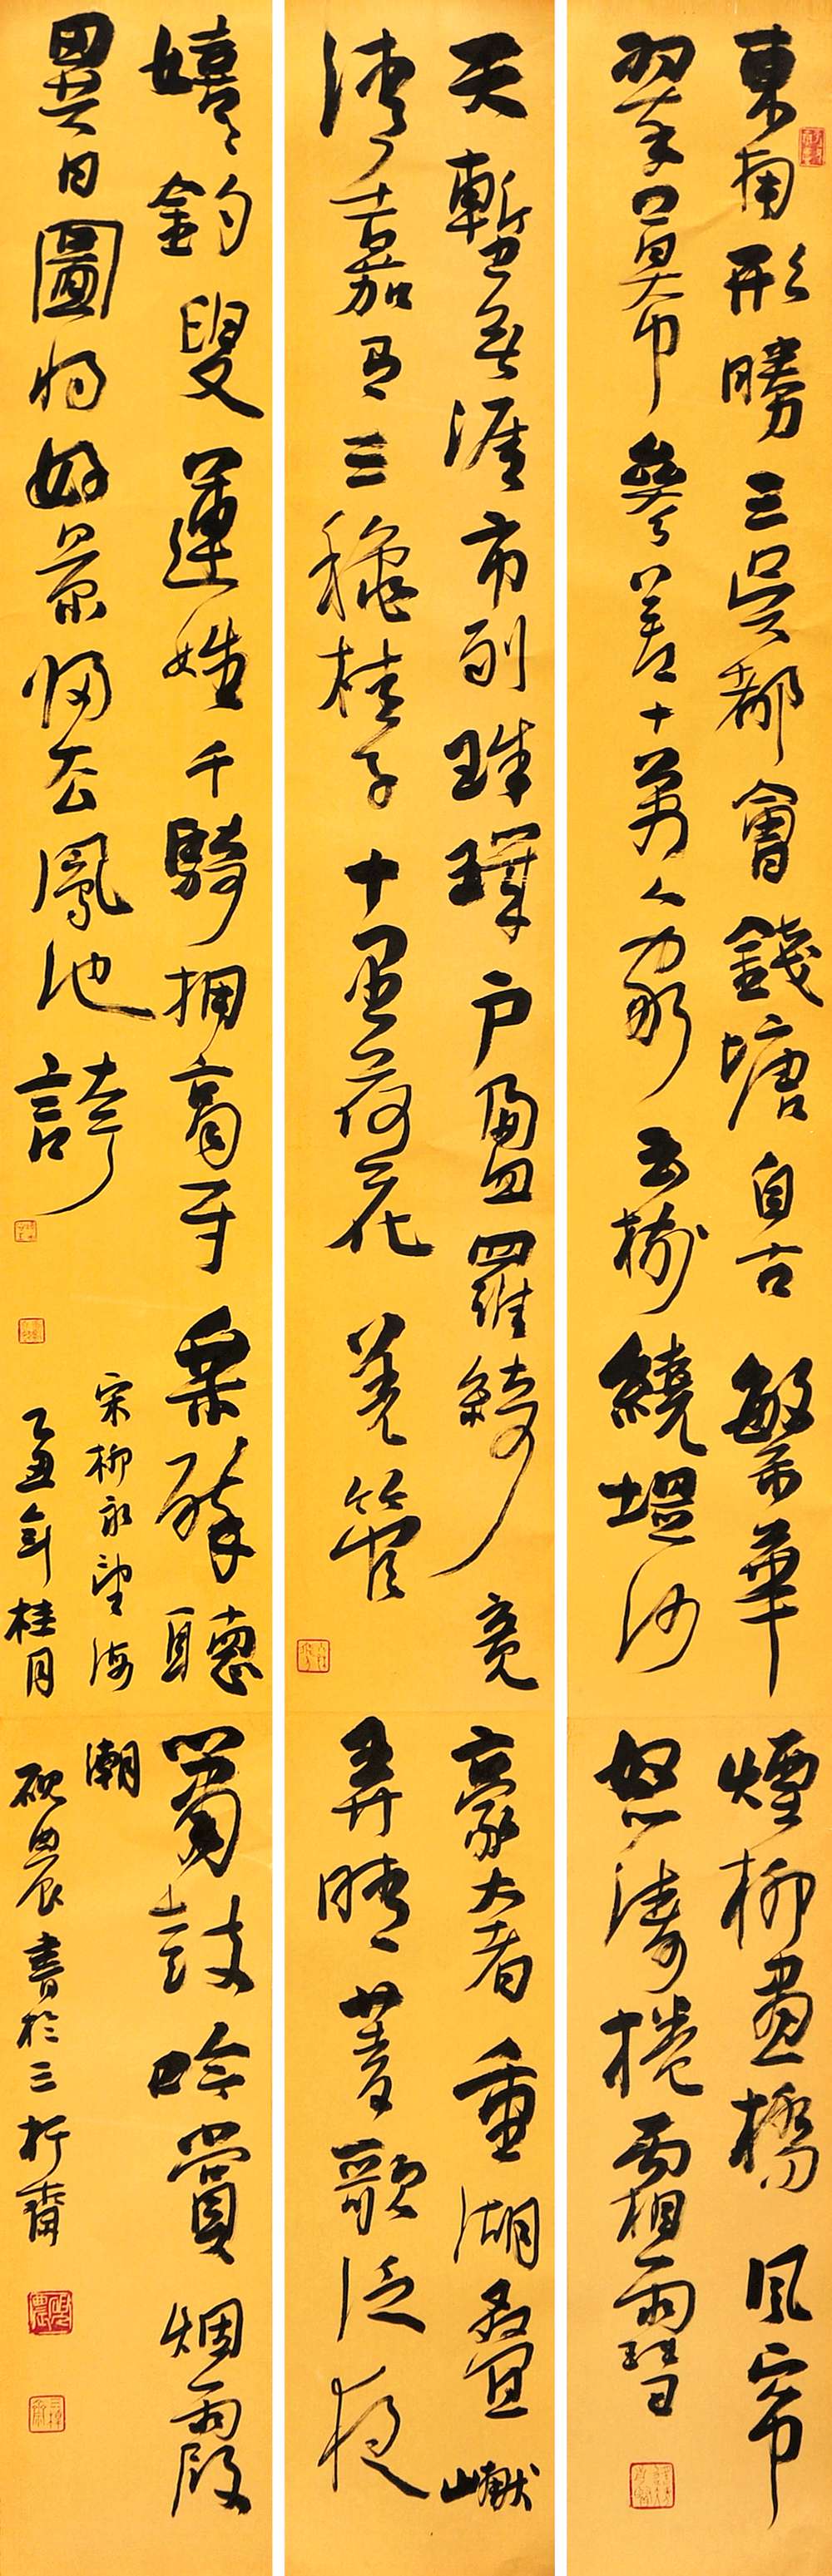 東南形勝三吳都會錢塘自古繁華煙柳畫橋風帘
翠幕參差十萬人家云樹繞堤沙怒濤捲霜雪
天塹無涯市列珠璣户盈羅綺竞豪奢重湖叠巘
清嘉有三秋桂子十里荷花羌管弄晴菱歌泛夜
嬉嬉釣叟蓮娃千騎擁高牙乘醉聽簫鼓吟賞烟霞
異日圖將好景歸去鳳池誇
宋柳永望海潮
乙丑年桂月硯農書於三齋